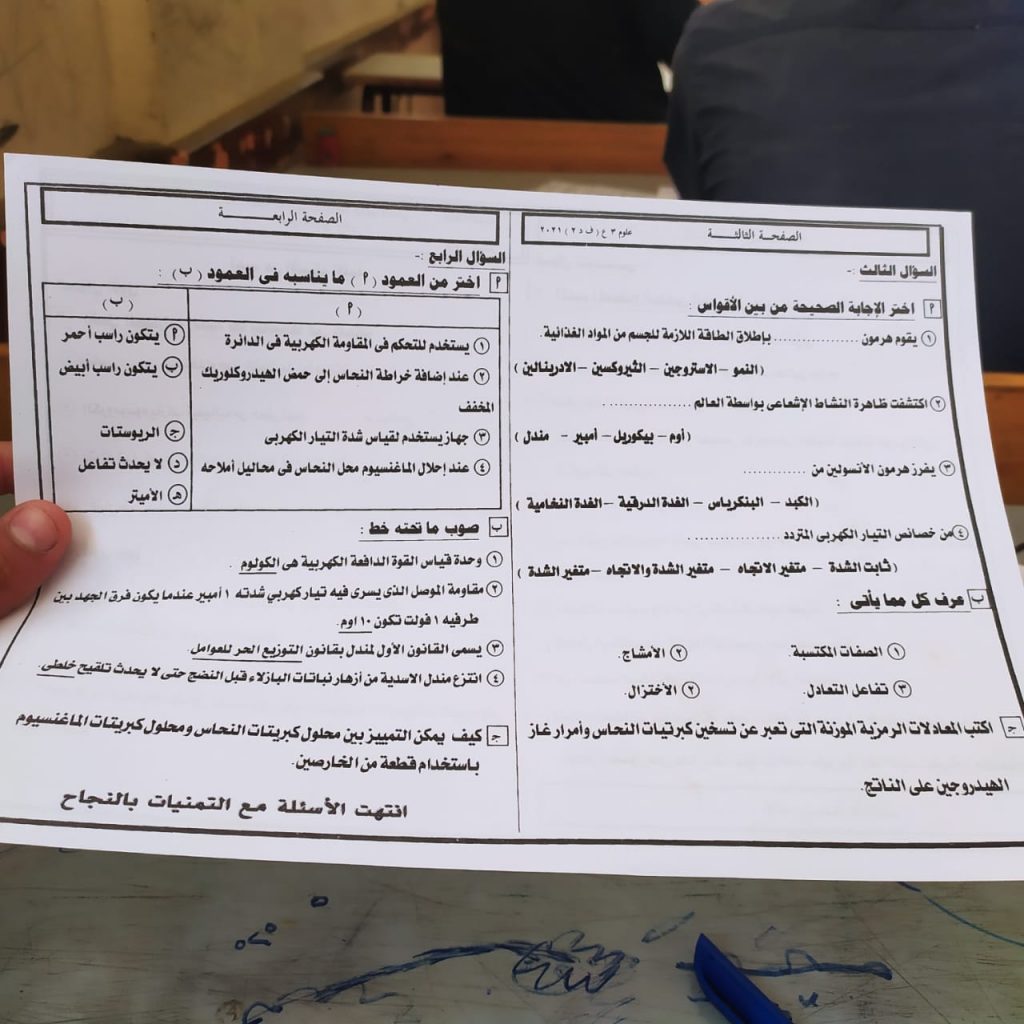 الصفحة الثالثة
علوم ٣ ع ( ف د ٢ ) ٢٠٢١
السؤال الثالث :-
أ اختر الإجابة الصحيحة من بين الأقواس :
١ يقوم هرمون ................ بإطلاق الطاقة اللازمة للجسم من المواد الغذائية.
(النمو – الاستروجين – الثيروكسين – الادرينالين )
٢ اكتشفت ظاهرة النشاط الإشعاعى بواسطة العالم .................
(أوم – بيكوريل – أمبير – مندل )
٣ يفرز هرمون الأنسولين من ............
(الكبد – البنكرياس – الغدة الدرقية – الغدة النخامية )
٤ من خصائص التيار الكهربى المتردد .................
(ثابت الشدة – متغير الاتجاه – متغير الشدة والاتجاه – متغير الشدة )
ب عرف كل مما يأتى :
١ الصفات المكتسبة. ٢ الأمشاج.
٣ تفاعل التعادل. ٢ الأختزال.
ج اكتب المعادلات الرمزية الموزنة التى تعبر عن تسخين كبرتيات النحاس وأمرار غاز
الهيدروجين على الناتج.
الصفحة الرابعة
السؤال الرابع :-
أ اختر من العمود ( أ ) ما يناسبه فى العمود ( ب ) :
( أ ) ( ب )
١ يستخدم للتحكم فى المقاومة الكهربية فى الدائرة أ يتكون راسب أحمر
٢ عند إضافة خراطة النحاس إلى حمض الهيدروكلوريك ب يتكون راسب أبيض
المخفف
٣ جهاز يستخدم لقياس شدة التيار الكهربى ج الريوستات
٤ عند إحلال الماغنسيوم محل النحاس فى محاليل أملاحه د لا يحدث تفاعل
هـ الأميتر
ب صوب ما تحته خط :
١ وحدة قياس القوة الدافعة الكهربية هى الكولوم .
٢ مقاومة الموصل الذى يسرى فيه تيار كهربي شدته ١ أمبير عندما يكون فرق الجهد بين
طرفيه ١ فولت تكون ١٠ اوم.
٣ يسمى القانون الأول لمندل بقانون التوزيع الحر للعوامل.
٤ انتزع مندل الاسدية من أزهار نباتات البازلاء قبل النضج حتى لا يحدث تلقيح خلطى.
ج كيف يمكن التمييز بين محلول كبريتات النحاس ومحلول كبريتات الماغنسيوم
باستخدام قطعة من الخارصين.
انتهت الأسئلة مع التمنيات بالنجاح